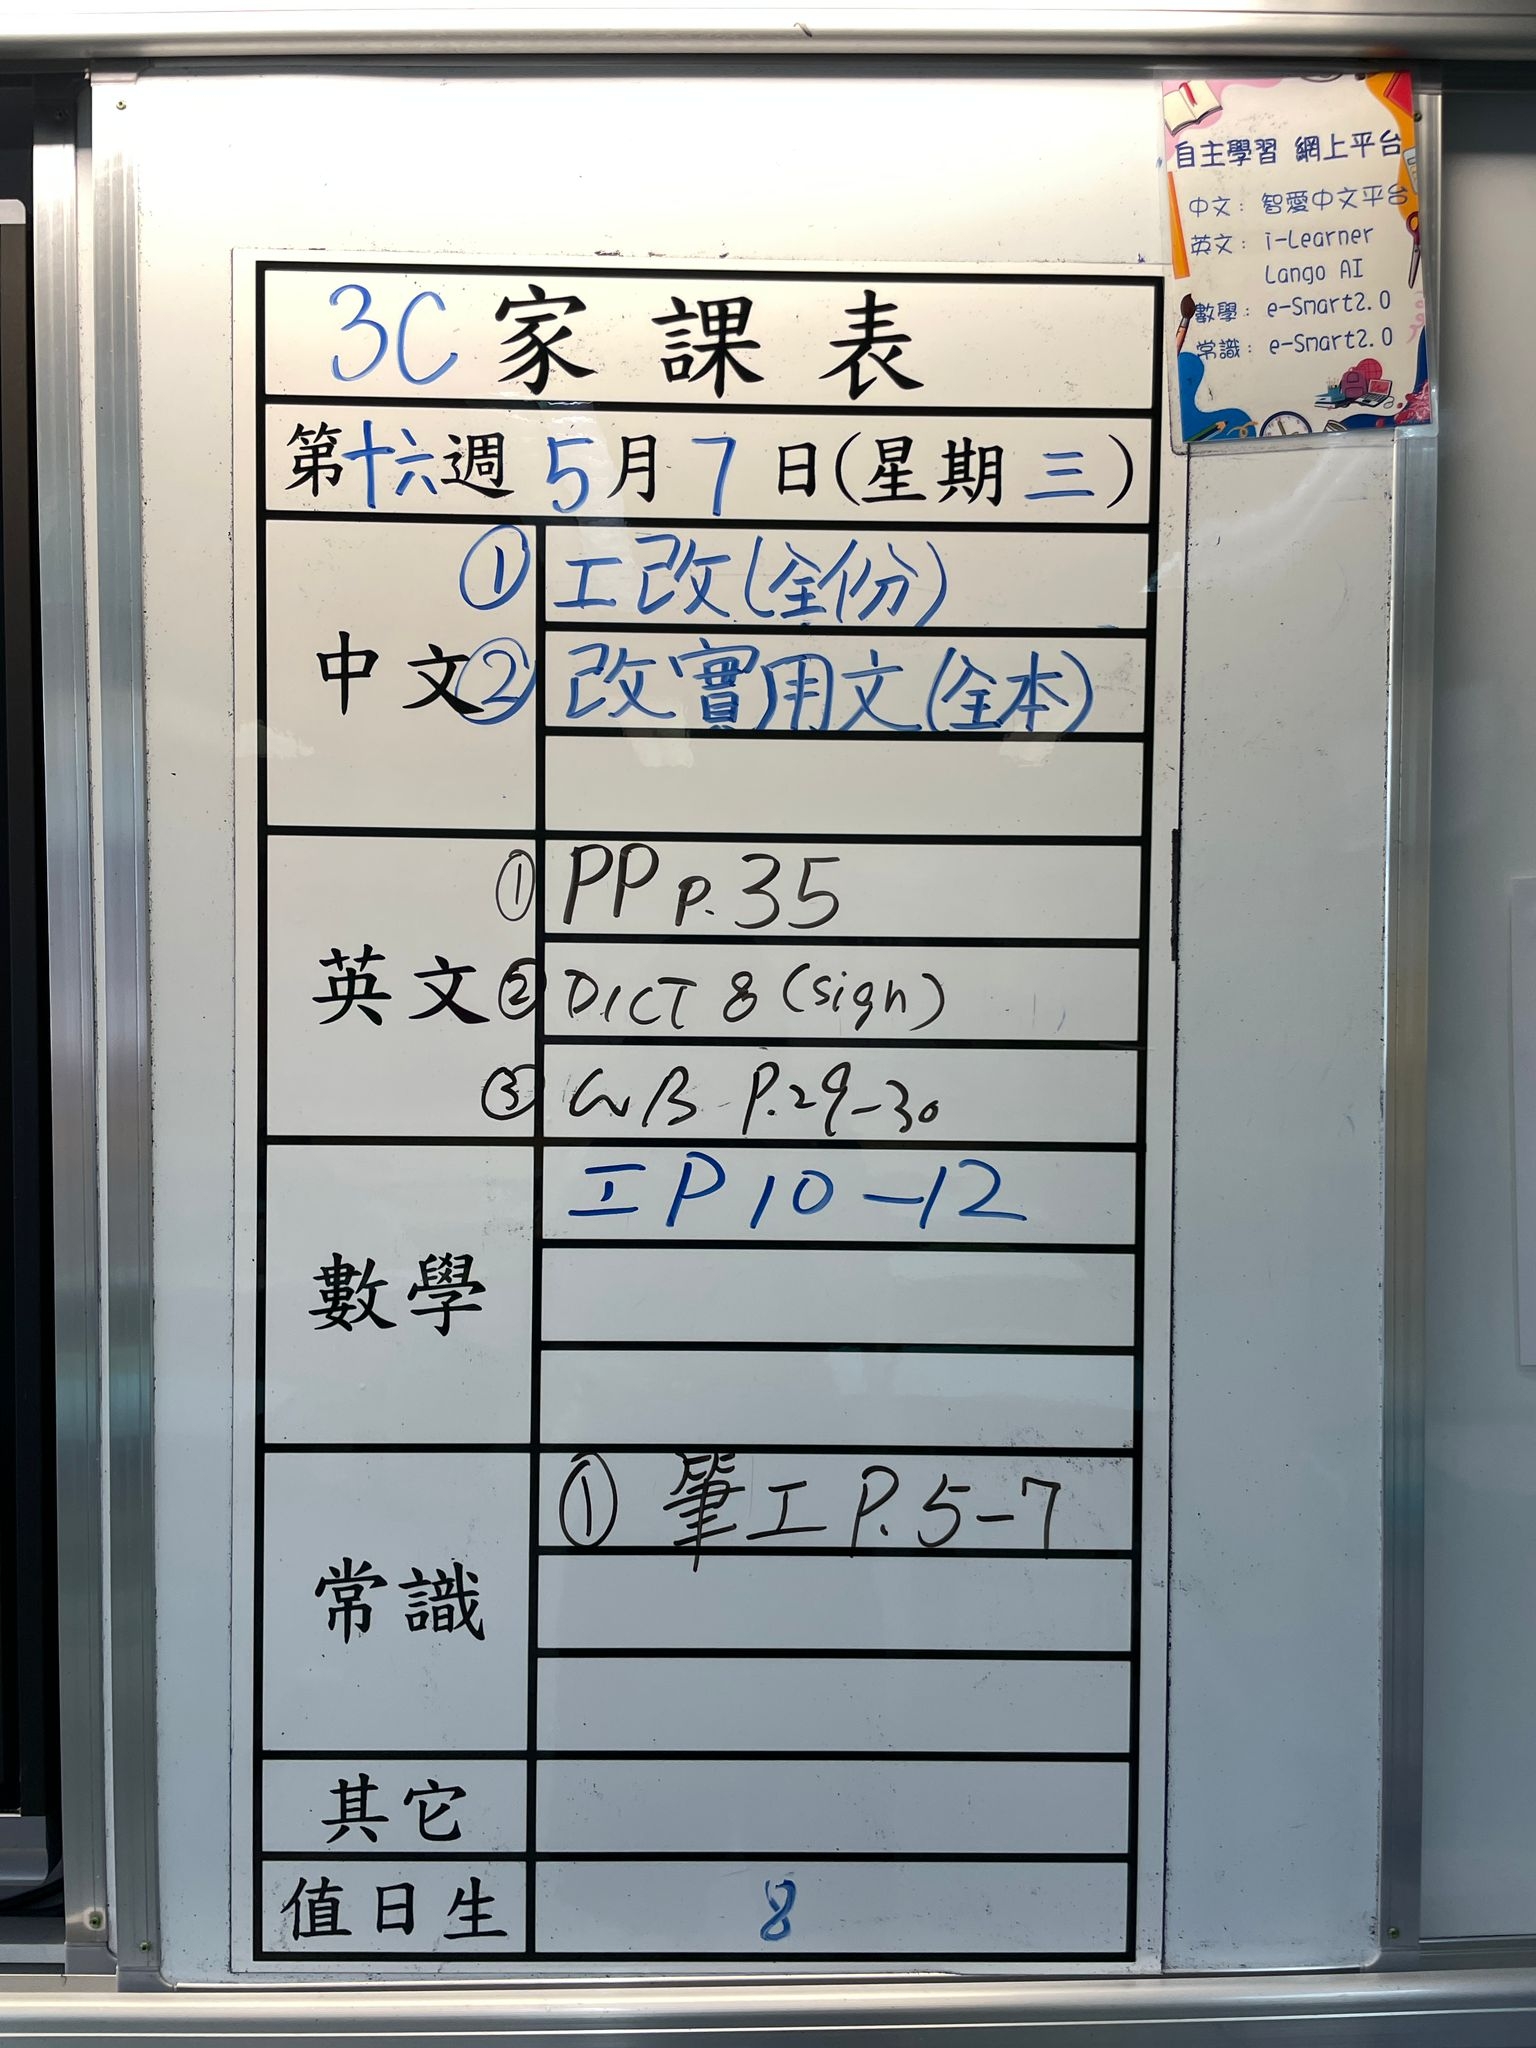 自主學習 網上平台
中文： 智愛中文平台
英文： i-Learner
Lango AI
數學： e-Smart2.0
常識： e-Smart2.0
3C 家課表
第十六週 5月7日(星期三)
中文
① 工改(全份)
② 改實用文(全本)
英文
① PP p.35
② DICT 8 (sign)
③ GWB P.29-30
數學
工P10-12
常識
① 筆工 P.5-7
其它
值日生
8